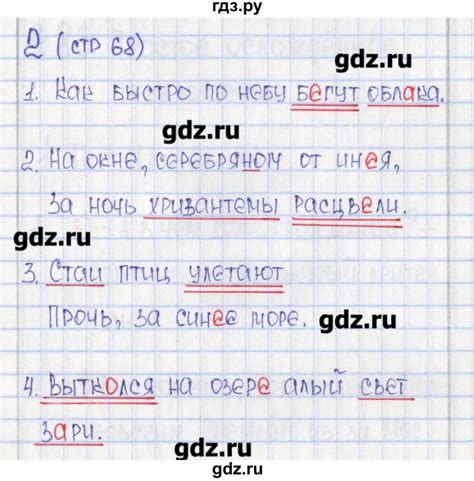 гдз.ру
2 (стр 68)
gdz.ru
1. Как быстро по небу бегут облака.
gdz.ru
2. На окне, серебряном от инея,
За ночь хризантемы расцвели.
gdz.ru
gdz.ru
3. Стаи птиц улетают
Прочь, за синее море.
gdz.ru
4. Выткался на озере алый свет
зари.
gdz.ru
gdz.ru